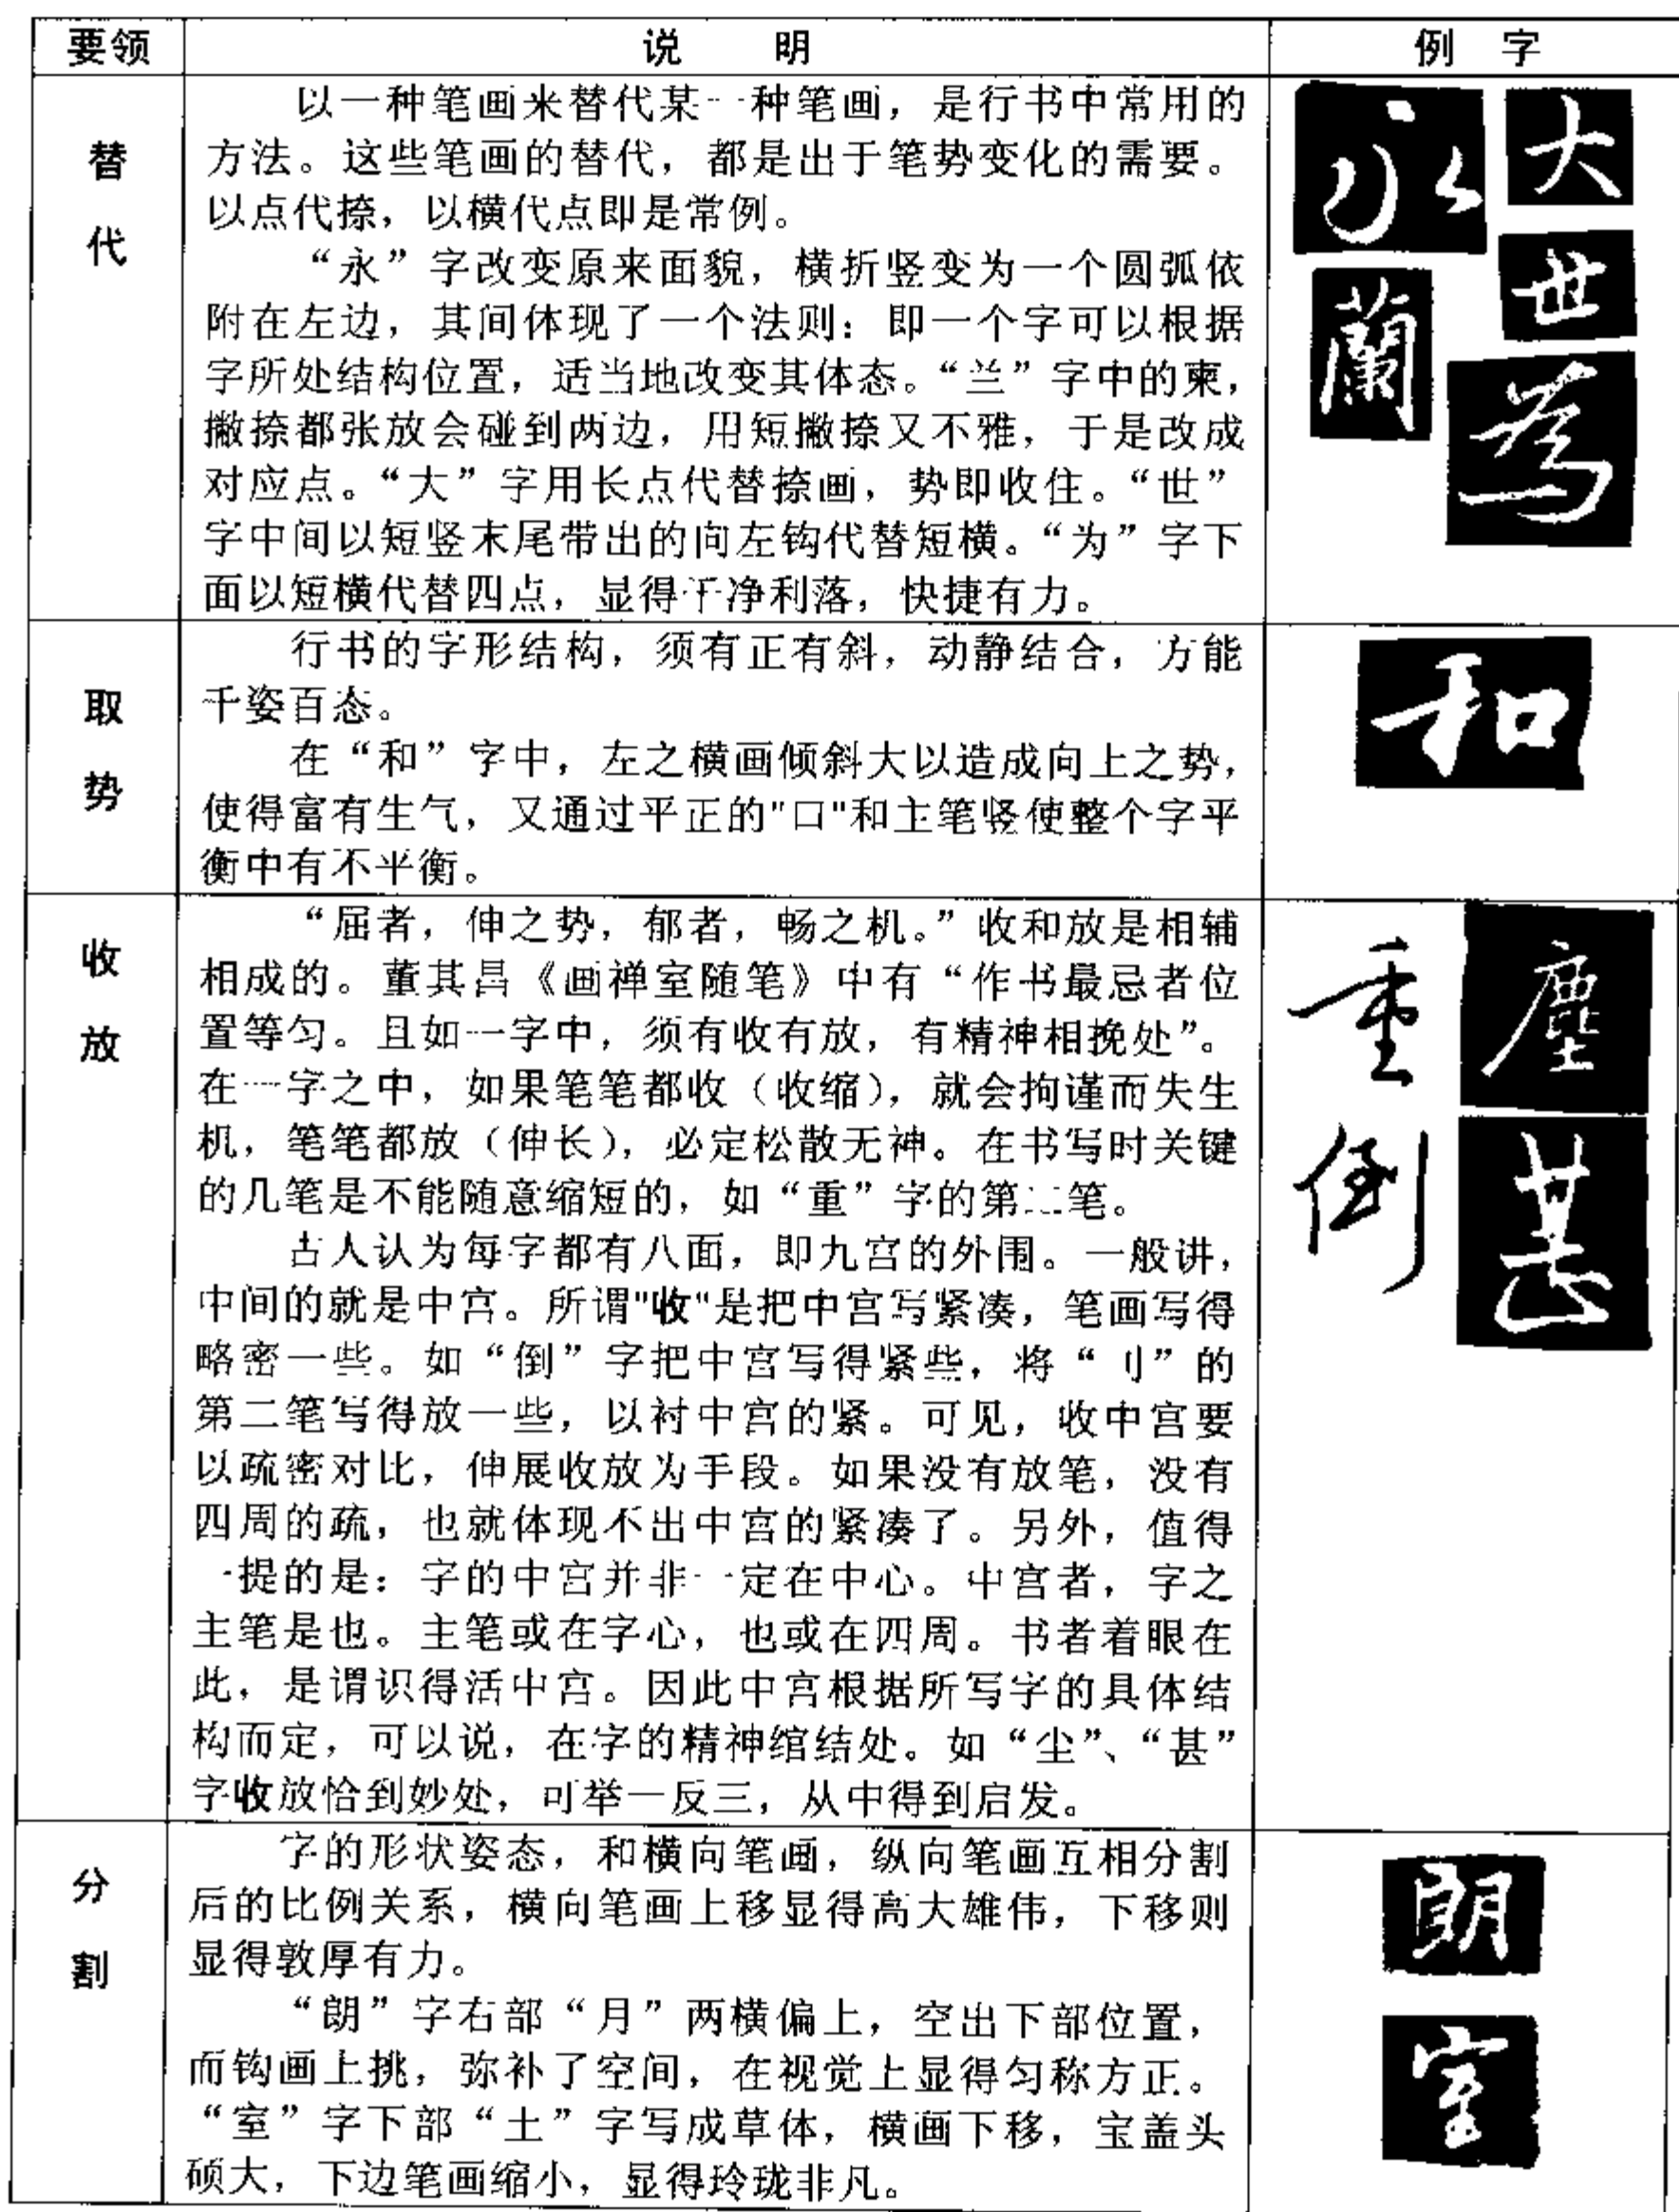 要领 说 明 例 字
替代
以一种笔画来替代某一种笔画，是行书中常用的
方法。这些笔画的替代，都是出于笔势变化的需要。
以点代捺，以横代点即是常例。
“永”字改变原来面貌，横折竖变为一个圆弧依
附在左边，其间体现了一个法则：即一个字可以根据
字所处结构位置，适当地改变其体态。“兰”字中的柬，
撇捺都张放会碰到两边，用短撇捺又不雅，于是改成
对应点。“大”字用长点代替捺画，势即收住。“世”
字中间以短竖末尾带出的向左钩代替短横。“为”字下
面以短横代替四点，显得干净利落，快捷有力。
永 大
世
蘭
為
取势
行书的字形结构，须有正有斜，动静结合，方能
千姿百态。
在“和”字中，左之横画倾斜大以造成向上之势，
使得富有生气，又通过平正的"口"和主笔竖使整个字平
衡中有不平衡。
和
收放
“屈者，伸之势，郁者，畅之机。”收和放是相辅
相成的。董其昌《画禅室随笔》中有“作书最忌者位
置等匀。且如一字中，须有收有放，有精神相挽处”。
在一字之中，如果笔笔都收（收缩），就会拘谨而失生
机，笔笔都放（伸长），必定松散无神。在书写时关键
的几笔是不能随意缩短的，如“重”字的第二笔。
古人认为每字都有八面，即九宫的外围。一般讲，
中间的就是中宫。所谓"收"是把中宫写紧凑，笔画写得
略密一些。如“倒”字把中宫写得紧些，将“刂”的
第二笔写得放一些，以衬中宫的紧。可见，收中宫要
以疏密对比，伸展收放为手段。如果没有放笔，没有
四周的疏，也就体现不出中宫的紧凑了。另外，值得
一提的是：字的中宫并非一定在中心。中宫者，字之
主笔是也。主笔或在字心，也或在四周。书者着眼在
此，是谓识得活中宫。因此中宫根据所写字的具体结
构而定，可以说，在字的精神绾结处。如“尘”、“甚”
字收放恰到妙处，可举一反三，从中得到启发。
重 塵
倒 甚
分割
字的形状姿态，和横向笔画，纵向笔画互相分割
后的比例关系，横向笔画上移显得高大雄伟，下移则
显得敦厚有力。
“朗”字右部“月”两横偏上，空出下部位置，
而钩画上挑，弥补了空间，在视觉上显得匀称方正。
“室”字下部“土”字写成草体，横画下移，宝盖头
硕大，下边笔画缩小，显得玲珑非凡。
朗
室